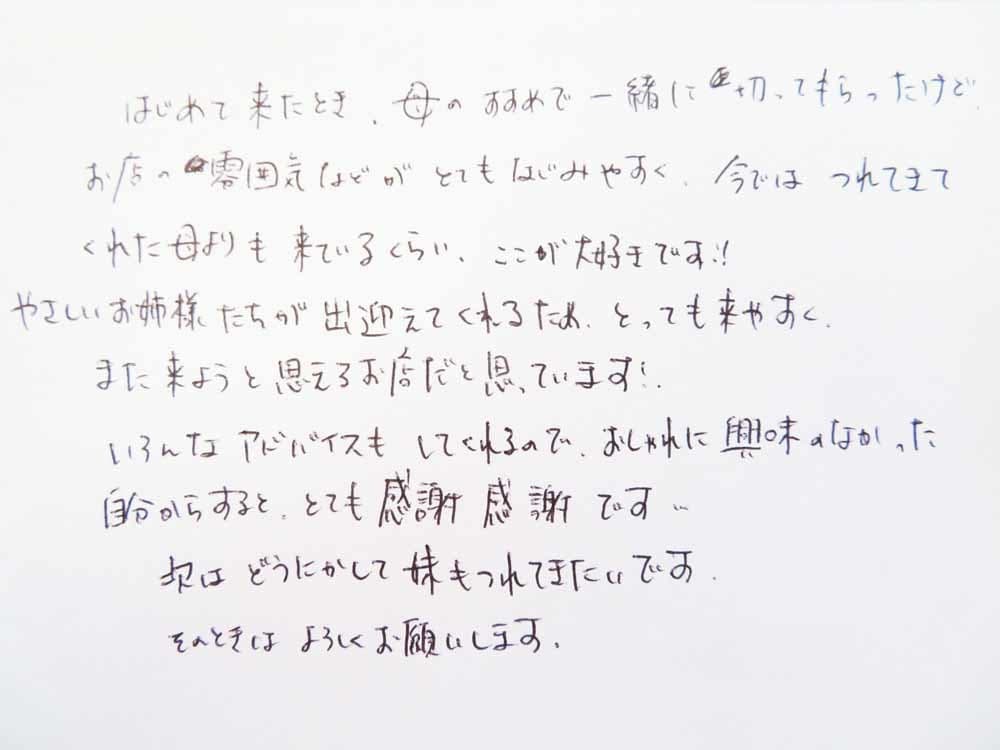 はじめて来たとき、母のすすめで一緒に切ってもらったけど
お店の雰囲気などがとてもはじみやすく、今ではつれてきて
くれた母よりも来ているくらい、ここが大好きです!!
やさしいお姉様たちが出迎えてくれるため、とっても来やすく、
また来ようと思えるお店だと思っています!.
いろんなアドバイスもしてくれるので、おしゃれに興味のなかった
自分からすると、とても感謝感謝です..
次はどうにかして妹もつれてきたいです.
そのときはよろしくお願いします.